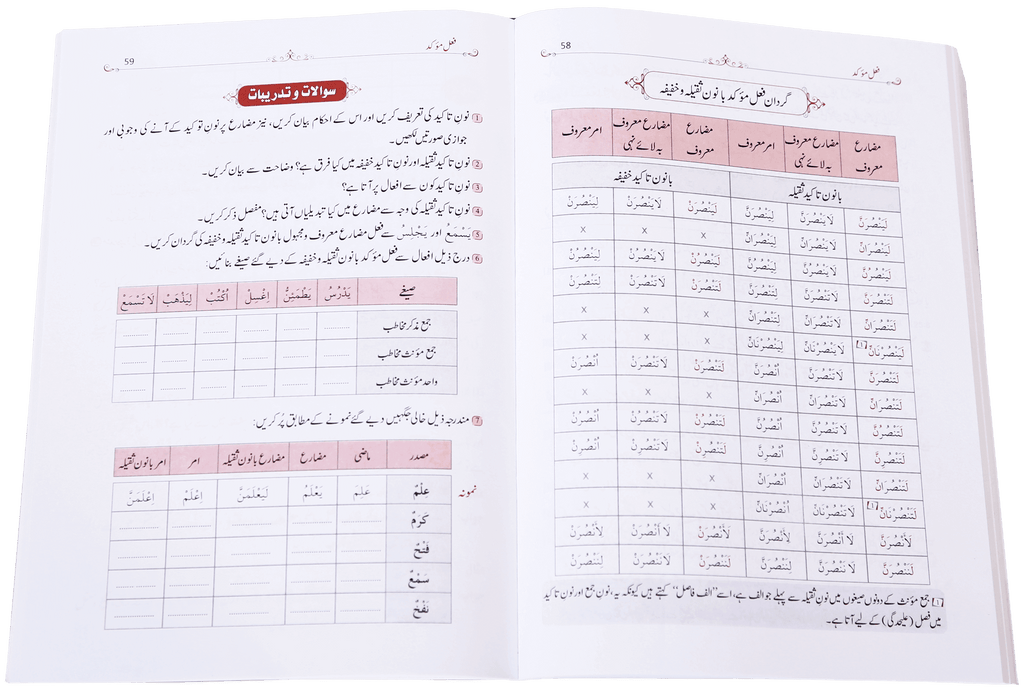 58
فعل مؤکد
گردان فعل مؤکد بانون ثقیلہ و خفیفہ
مضارع معروف | مضارع معروف بہ لائے نہی | امر معروف | مضارع معروف | مضارع معروف بہ لائے نہی | امر معروف
بانون تاکید ثقیلہ | بانون تاکید خفیفہ
لَيَنْصُرَنَّ | لَا يَنْصُرَنَّ | لِيَنْصُرَنَّ | لَيَنْصُرَنْ | لَا يَنْصُرَنْ | لِيَنْصُرَنْ
لَيَنْصُرَانِّ | لَا يَنْصُرَانِّ | لِيَنْصُرَانِّ | x | x | x
لَيَنْصُرُنَّ | لَا يَنْصُرُنَّ | لِيَنْصُرُنَّ | لَيَنْصُرُنْ | لَا يَنْصُرُنْ | لِيَنْصُرُنْ
لَتَنْصُرَنَّ | لَا تَنْصُرَنَّ | لِتَنْصُرَنَّ | لَتَنْصُرَنْ | لَا تَنْصُرَنْ | لِتَنْصُرَنْ
لَتَنْصُرَانِّ | لَا تَنْصُرَانِّ | لِتَنْصُرَانِّ | x | x | x
لَيَنْصُرْنَانِّ [1] | لَا يَنْصُرْنَانِّ | لِيَنْصُرْنَانِّ | x | x | x
لَتَنْصُرَنَّ | لَا تَنْصُرَنَّ | اُنْصُرَنَّ | لَتَنْصُرَنْ | لَا تَنْصُرَنْ | اُنْصُرَنْ
لَتَنْصُرَانِّ | لَا تَنْصُرَانِّ | اُنْصُرَانِّ | x | x | x
لَتَنْصُرُنَّ | لَا تَنْصُرُنَّ | اُنْصُرُنَّ | لَتَنْصُرُنْ | لَا تَنْصُرُنْ | اُنْصُرُنْ
لَتَنْصُرِنَّ | لَا تَنْصُرِنَّ | اُنْصُرِنَّ | لَتَنْصُرِنْ | لَا تَنْصُرِنْ | اُنْصُرِنْ
لَتَنْصُرَانِّ | لَا تَنْصُرَانِّ | اُنْصُرَانِّ | x | x | x
لَتَنْصُرْنَانِّ [1] | لَا تَنْصُرْنَانِّ | اُنْصُرْنَانِّ | x | x | x
لَأَنْصُرَنَّ | لَا أَنْصُرَنَّ | لِأَنْصُرَنَّ | لَأَنْصُرَنْ | لَا أَنْصُرَنْ | لِأَنْصُرَنْ
لَنَنْصُرَنَّ | لَا نَنْصُرَنَّ | لِنَنْصُرَنَّ | لَنَنْصُرَنْ | لَا نَنْصُرَنْ | لِنَنْصُرَنْ
[1] جمع مؤنث کے دونوں صیغوں میں نون ثقیلہ سے پہلے جو الف ہے، اسے "الف فاصل" کہتے ہیں کیونکہ یہ، نون جمع اور نون تاکید
میں فصل (علیحدگی) کے لیے آتا ہے۔
فعل مؤکد
59
سوالات و تدریبات
1 نون تاکید کی تعریف کریں اور اس کے احکام بیان کریں، نیز مضارع پر نون توکید کے آنے کی وجوبی اور
جوازی صورتیں لکھیں۔
2 نون تاکید ثقیلہ اور نون تاکید خفیفہ میں کیا فرق ہے؟ وضاحت سے بیان کریں۔
3 نون تاکید کون سے افعال پر آتا ہے؟
4 نون تاکید ثقیلہ کی وجہ سے مضارع میں کیا تبدیلیاں آتی ہیں؟ مفصل ذکر کریں۔
5 يَسْمَعُ اور يَجْلِسُ سے فعل مضارع معروف و مجہول بانون تاکید ثقیلہ و خفیفہ کی گردان کریں۔
6 درج ذیل افعال سے فعل مؤکد بانون ثقیلہ و خفیفہ کے دیے گئے صیغے بنائیں:
صیغے | يَدْرُسُ | يَطْمَئِنُّ | اِغْسِلْ | اُكْتُبْ | لِيَذْهَبْ | لَا تَسْمَعْ
جمع مذکر مخاطب
جمع مؤنث مخاطب
واحد مؤنث مخاطب
7 مندرجہ ذیل خالی جگہیں دیے گئے نمونے کے مطابق پُر کریں:
مصدر | ماضی | مضارع | مضارع بانون ثقیلہ | امر | امر بانون ثقیلہ
نمونہ عِلْمٌ | عَلِمَ | يَعْلَمُ | لَيَعْلَمَنَّ | اِعْلَمْ | اِعْلَمَنَّ
كَرَمٌ
فَتْحٌ
سَمْعٌ
نَفْخٌ